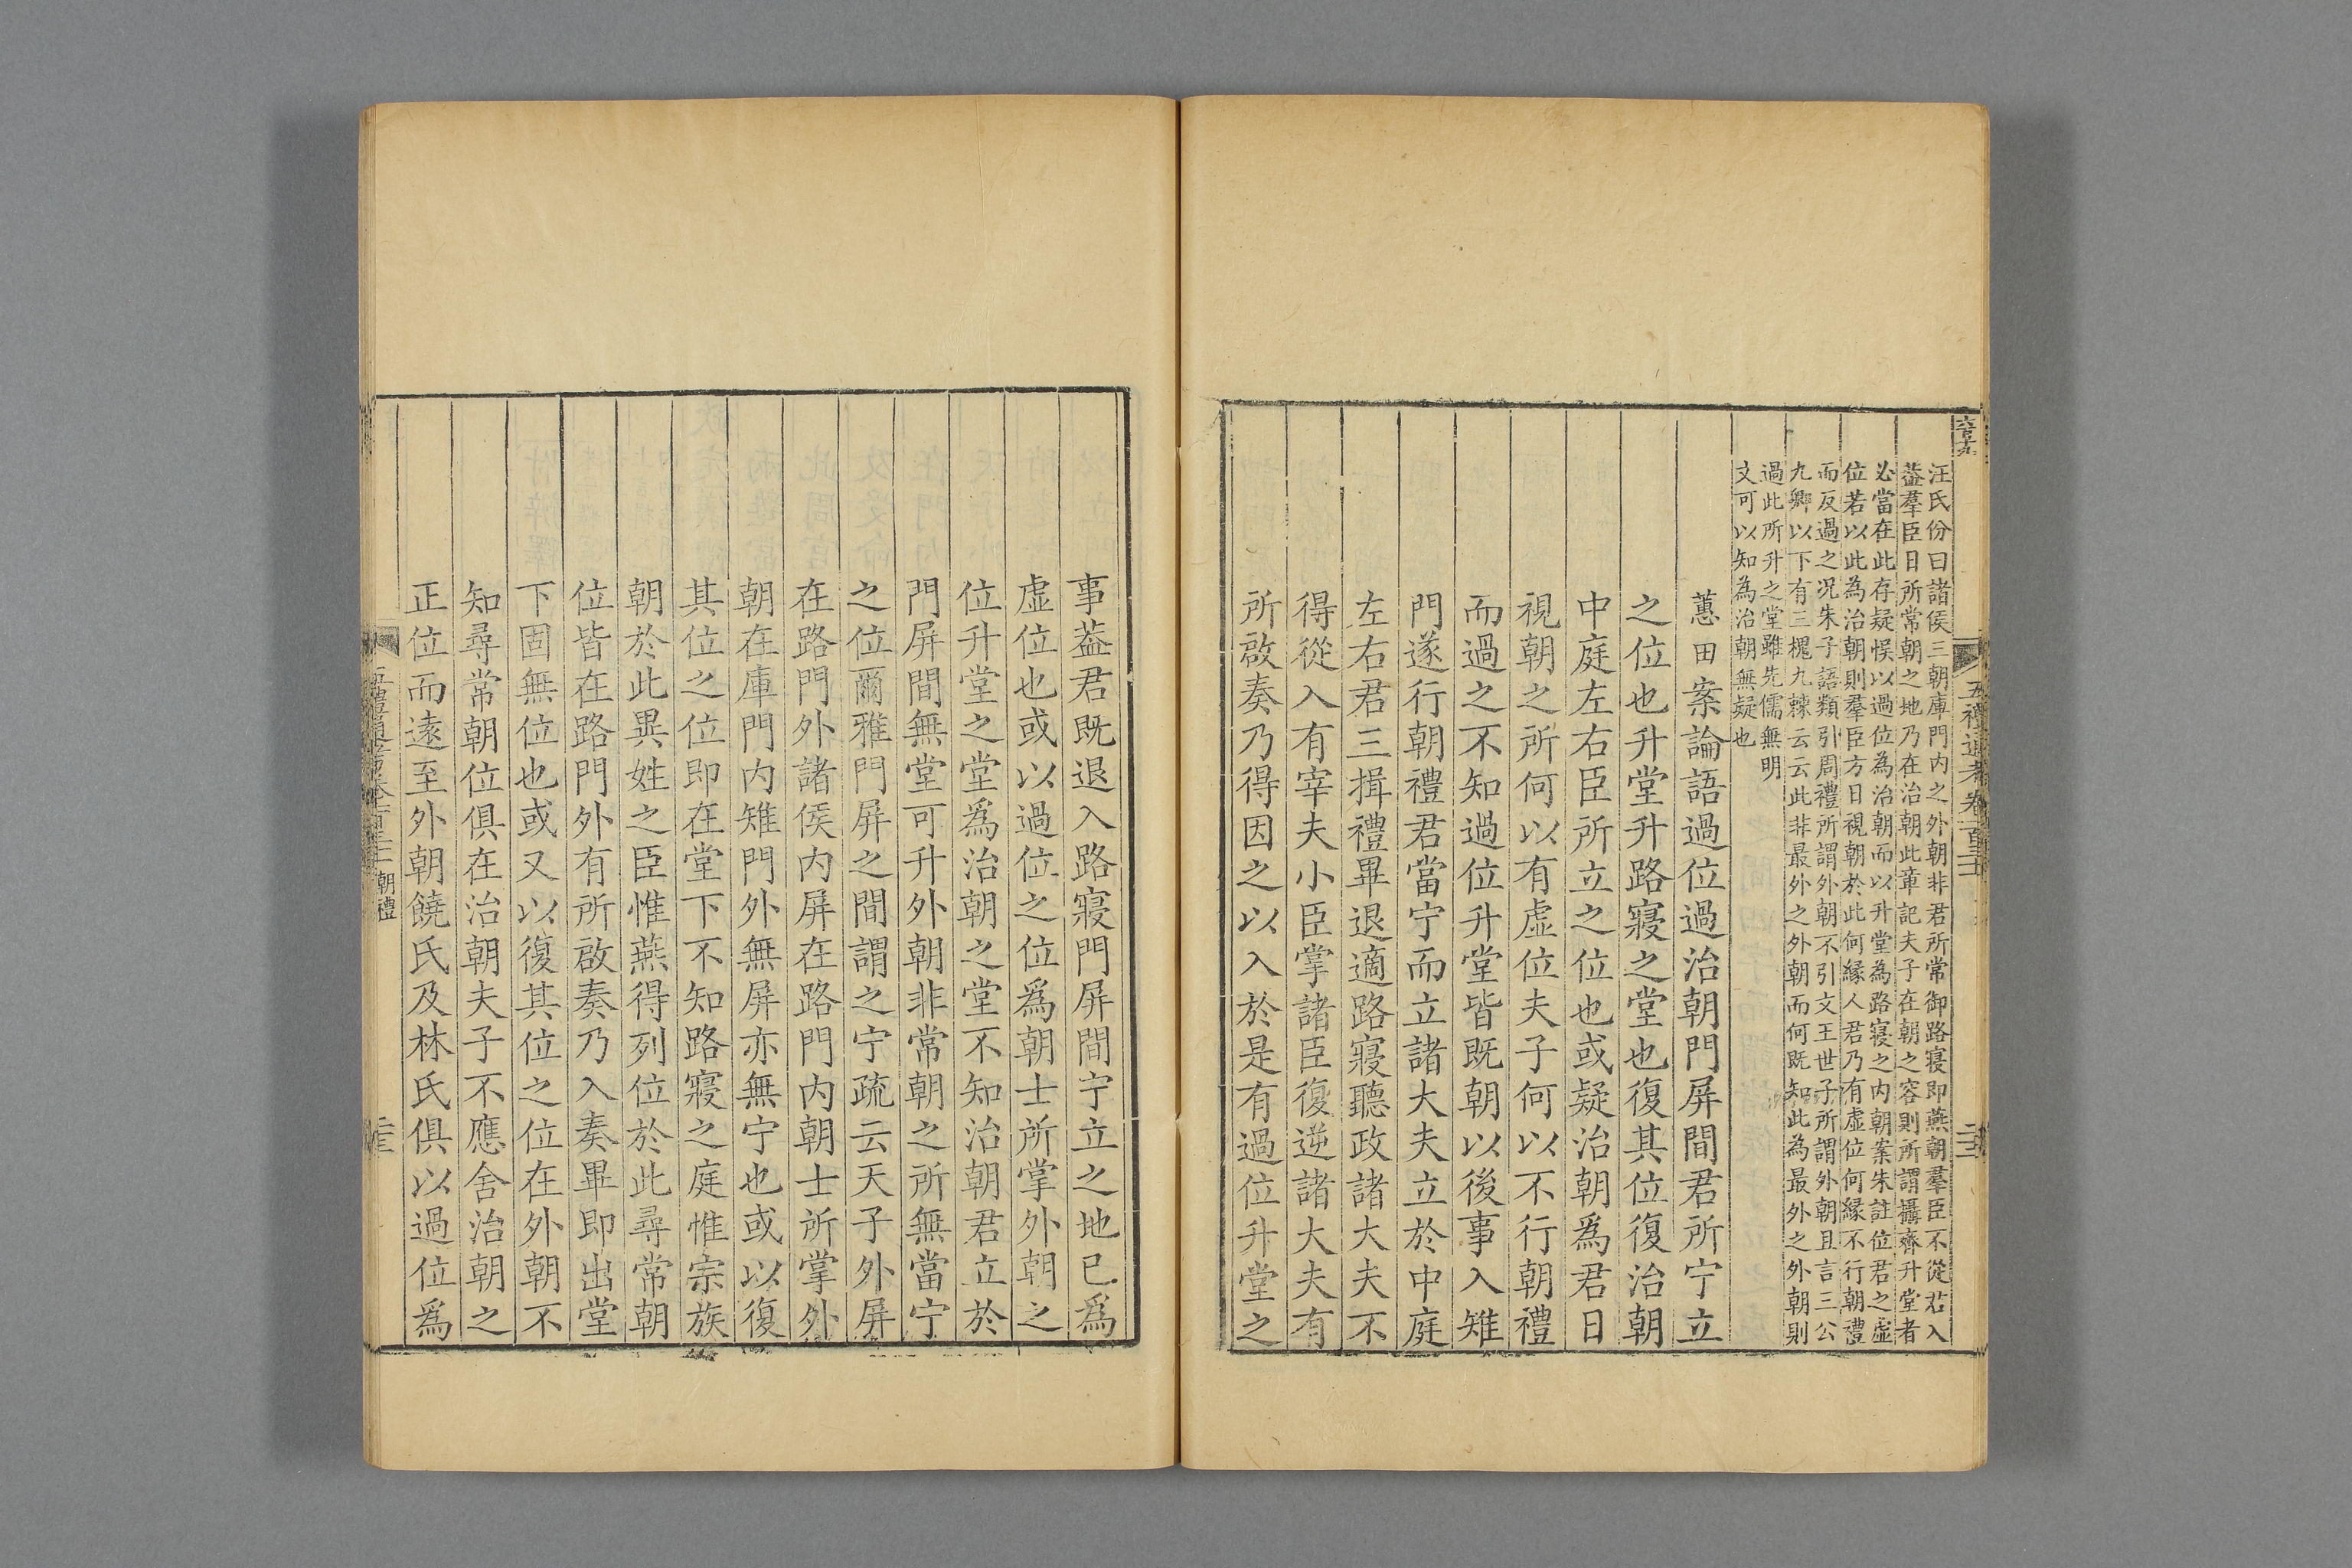 六百十九
五禮通考卷一百三十
汪氏份曰諸侯三朝庫門內之外朝非君所常御路寢即燕朝羣臣不從君入
葢羣臣日所常朝之地乃在治朝此章記夫子在朝之容則所謂攝齊升堂者
必當在此存疑悞以過位為治朝而以升堂為路寢之內朝案朱註位君之虛
位若以此為治朝則羣臣方日視朝於此何緣人君乃有虛位何緣不行朝禮
而反過之况朱子語類引周禮所謂外朝不引文王世子所謂外朝且言三公
九卿以下有三槐九棘云云此非最外之外朝而何既知此為最外之外朝則
過此所升之堂雖先儒無明
文可以知為治朝無疑也
蕙田案論語過位過治朝門屏間君所宁立
之位也升堂升路寢之堂也復其位復治朝
中庭左右臣所立之位也或疑治朝爲君日
視朝之所何以有虛位夫子何以不行朝禮
而過之不知過位升堂皆既朝以後事入雉
門遂行朝禮君當宁而立諸大夫立於中庭
左右君三揖禮畢退適路寢聽政諸大夫不
得從入有宰夫小臣掌諸臣復逆諸大夫有
所啟奏乃得因之以入於是有過位升堂之
事葢君既退入路寢門屏間宁立之地已爲
虛位也或以過位之位爲朝士所掌外朝之
位升堂之堂爲治朝之堂不知治朝君立於
門屏間無堂可升外朝非常朝之所無當宁
之位爾雅門屏之間謂之宁疏云天子外屏
在路門外諸侯內屏在路門內朝士所掌外
朝在庫門內雉門外無屏亦無宁也或以復
其位之位即在堂下不知路寢之庭惟宗族
朝於此異姓之臣惟燕得列位於此尋常朝
位皆在路門外有所啟奏乃入奏畢即出堂
下固無位也或又以復其位之位在外朝不
知尋常朝位俱在治朝夫子不應舍治朝之
正位而遠至外朝饒氏及林氏俱以過位爲
五禮通考卷一百三十 朝禮